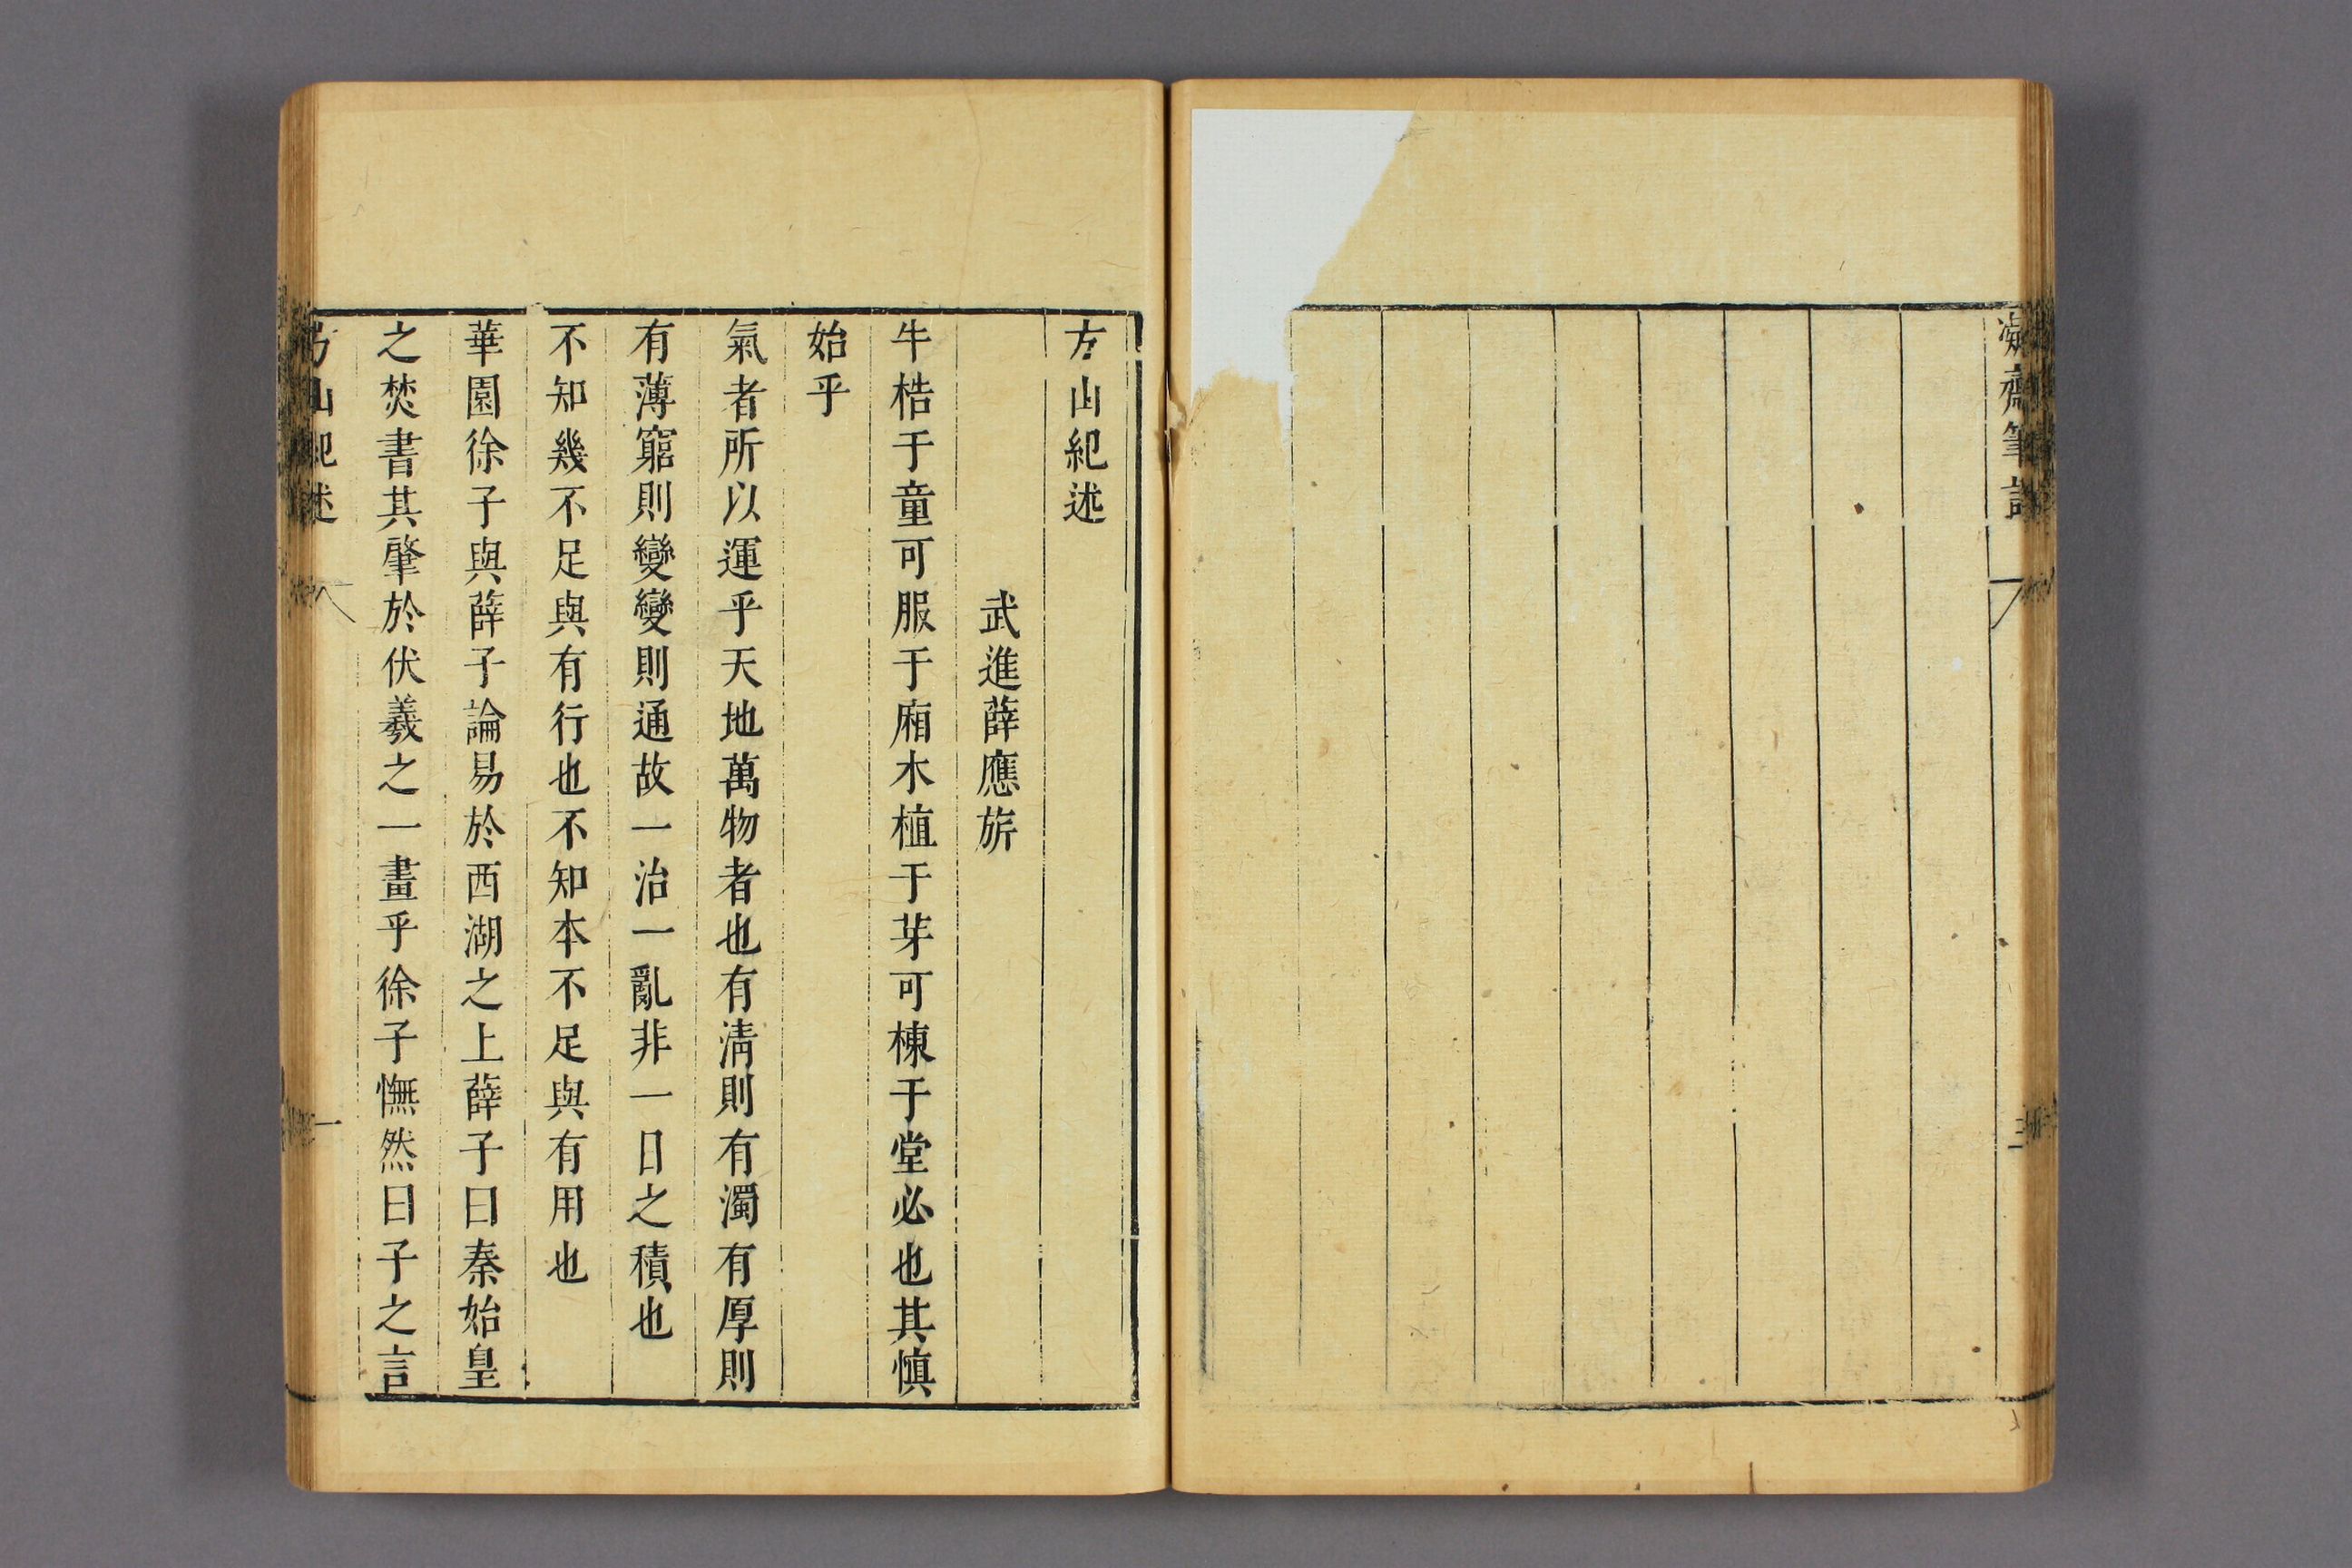 凝齋筆語
三
方山紀述
武進薛應旂
牛梏于童可服于廂木植于芽可棟于堂必也其慎
始乎
氣者所以運乎天地萬物者也有清則有濁有厚則
有薄窮則變變則通故一治一亂非一日之積也
不知幾不足與有行也不知本不足與有用也
華園徐子與薛子論易於西湖之上薛子曰秦始皇
之焚書其肇於伏羲之一畫乎徐子憮然曰子之言
方山紀述
一